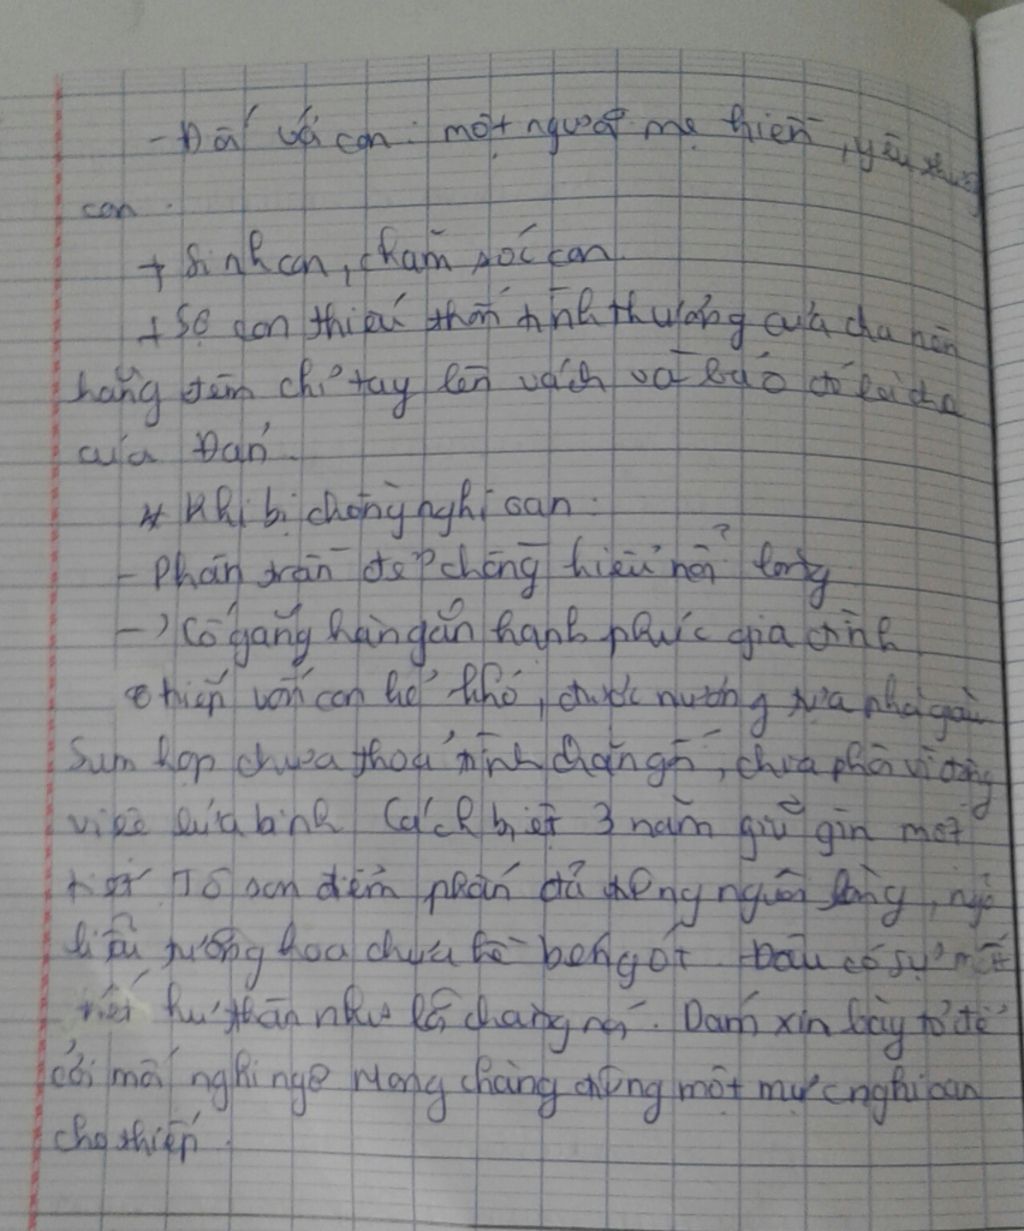 - Đối với con: một người mẹ hiền, yêu thương
con.
+ Sinh con, chăm sóc con.
+ Sợ con thiếu thốn tình thương của cha nên
hằng đêm chỉ tay lên vách và bảo đó là cha
của Đản.
* Khi bị chồng nghi oan:
- Phân trần để chồng hiểu nỗi lòng
-> Cố gắng hàn gắn hạnh phúc gia đình
thiếp vốn con kẻ khó, được nương tựa nhà giàu
Sum họp chưa thoả tình chăn gối, chia phôi vì động
việc lửa binh Cách biệt 3 năm giữ gìn một
tiết Tô son điểm phấn đã từng nguôi lòng, ngõ
liễu tường hoa chưa hề bén gót Đâu có sự mất
nết hư thân như lời chàng nói. Dám xin bày tỏ để
cởi mối nghi ngờ Mong chàng đừng một mực nghi oan
cho thiếp.